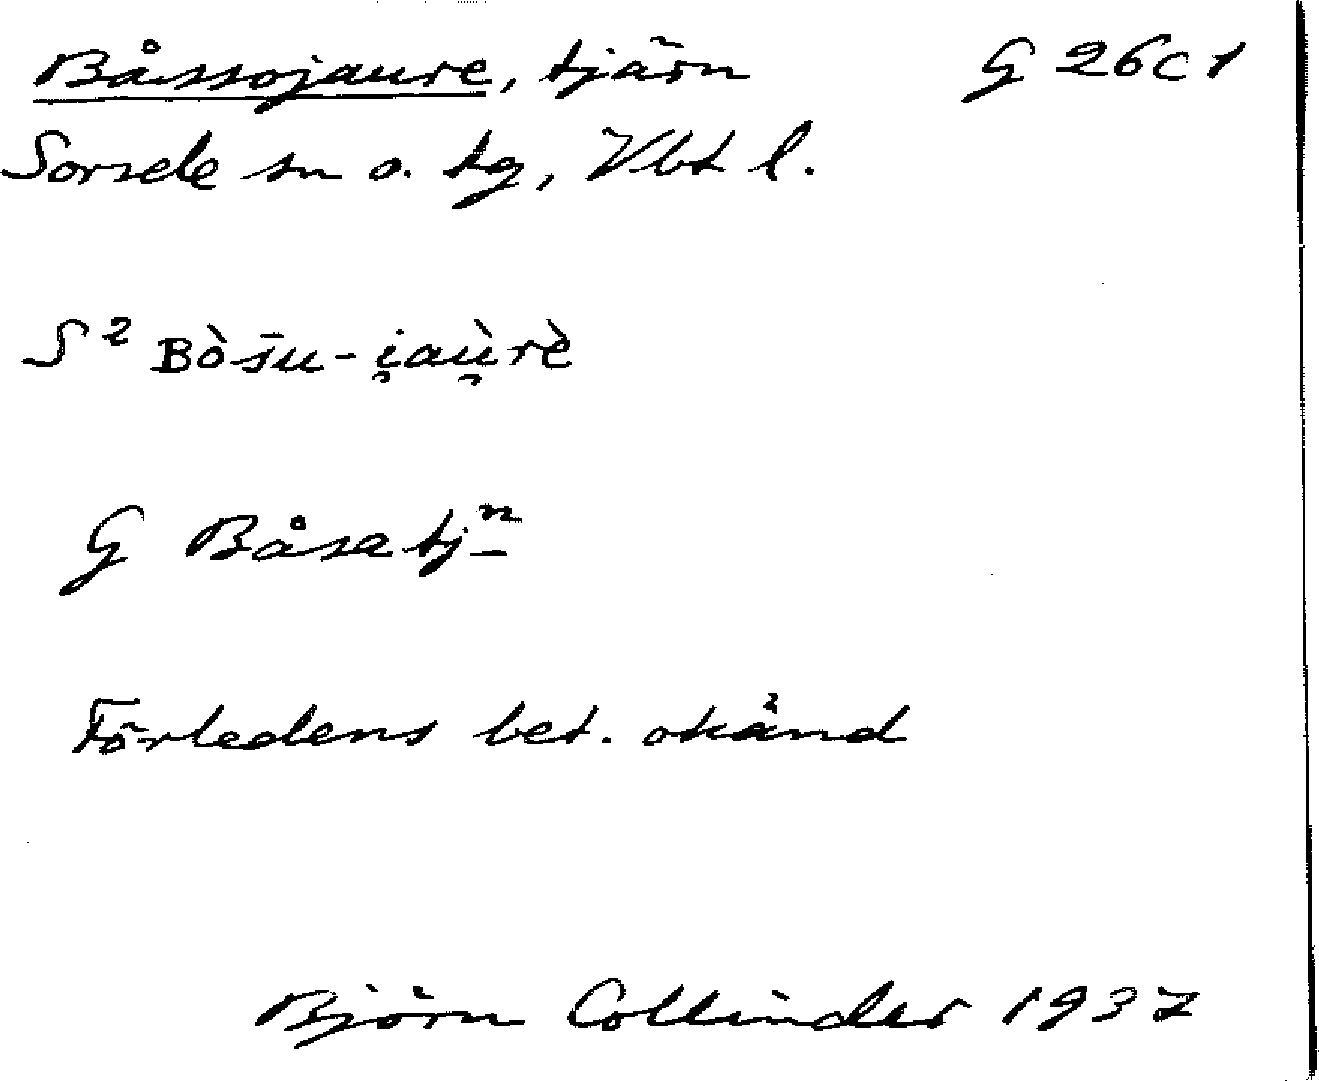 Båssojaure, tjärn G 26c1
Sorsele sn o. tg, Vbt l.
S² Bòs̄u-i̯aù̯rè
G Båsatjⁿ
Förledens bet. okänd
Björn Collinder 1937